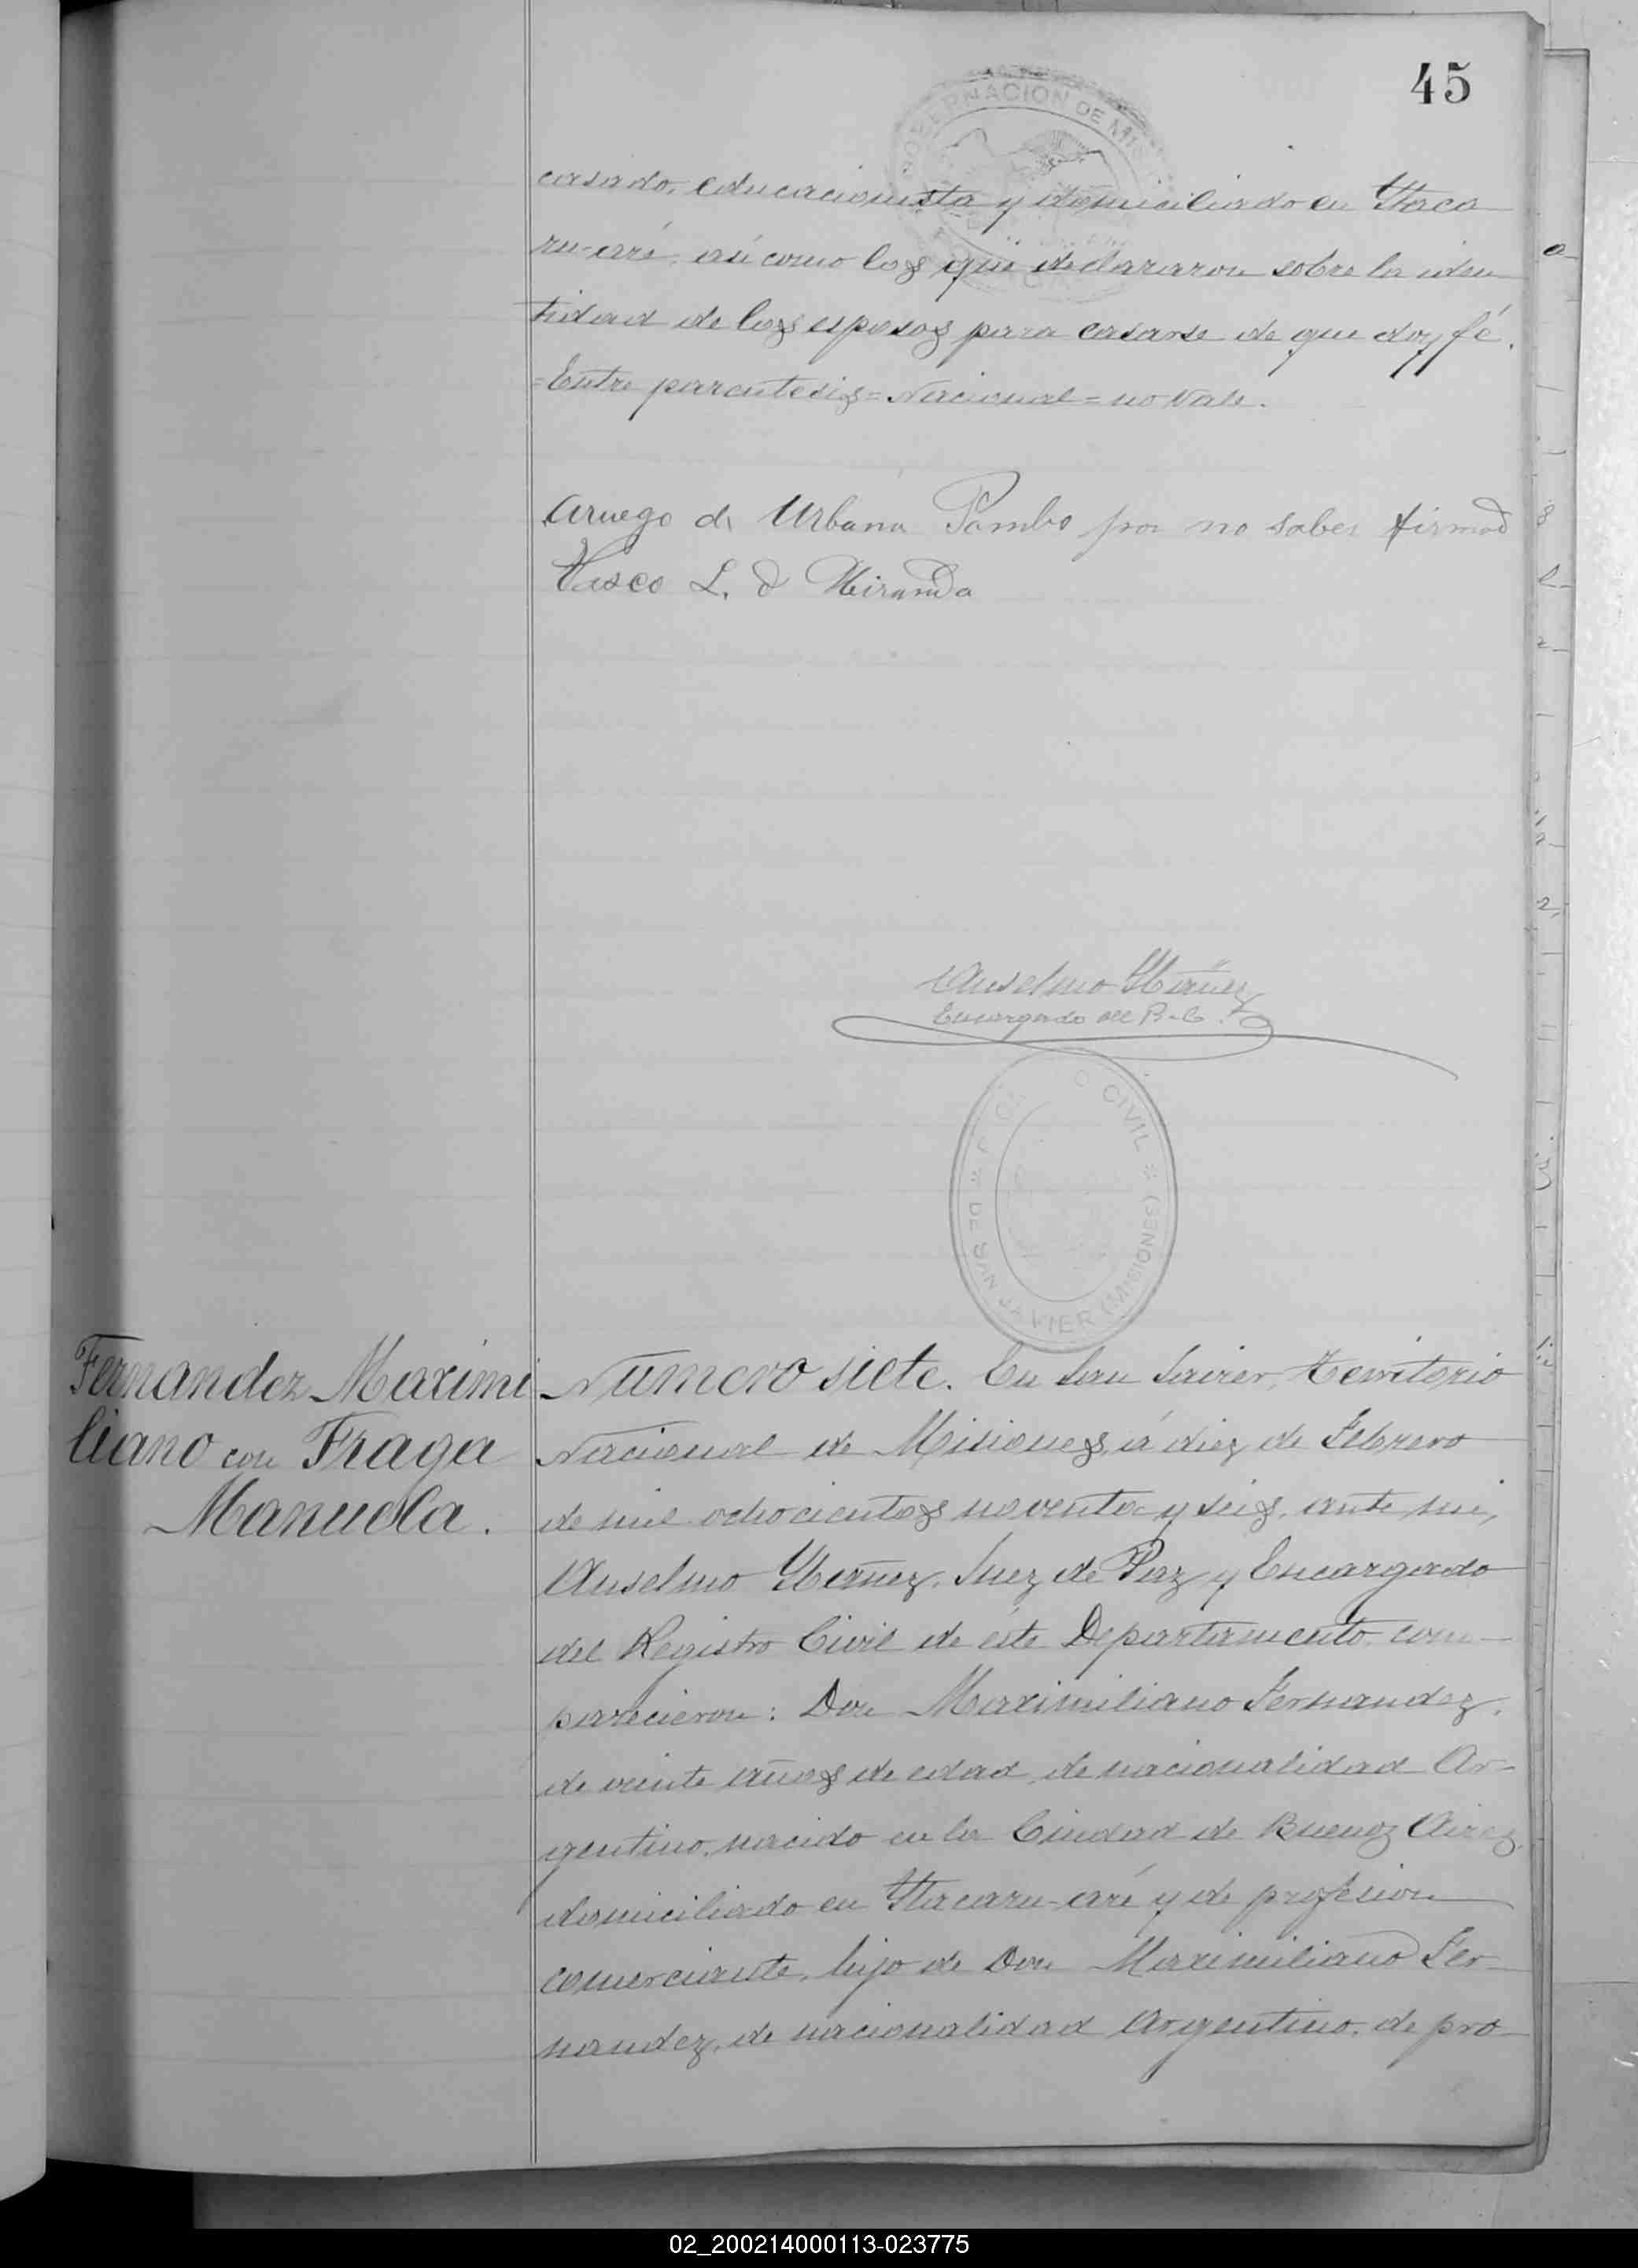 45
GOBERNACION DE MIS
casado, educacionista y domiciliado en Ytaca
ru-aré, asi como los que declararon sobre la iden
tidad de los esposos para casarse de que doy fé.
=Entre parentesis=Nacional=no vale.
Aruego de Urbana Pambo por no saber firmad
Vasco L. d Miranda
Anselmo Ybañez
Encargado del R-C.
O CIVIL * DE SAN JAVIER (MISIONES)
Fernandez Maximi
liano con Fraga
Manuela.
Numero siete. En San Javier, Territorio
Nacional de Misiones, á diez de Febrero
de mil ochocientos noventa y seis, ante mi,
Anselmo Ybañez, Juez de Paz y Encargado
del Registro Civil de éste Departamento, com-
parecieron: Don Maximiliano Fernandez,
de veinte años de edad, de nacionalidad Ar-
gentino, nacido en la Ciudad de Buenos Aires,
domiciliado en Ytacaru-aré y de profesion
comerciante, hijo de Don Maximiliano Fer-
nandez, de nacionalidad Argentino, de pro-
02_200214000113-023775